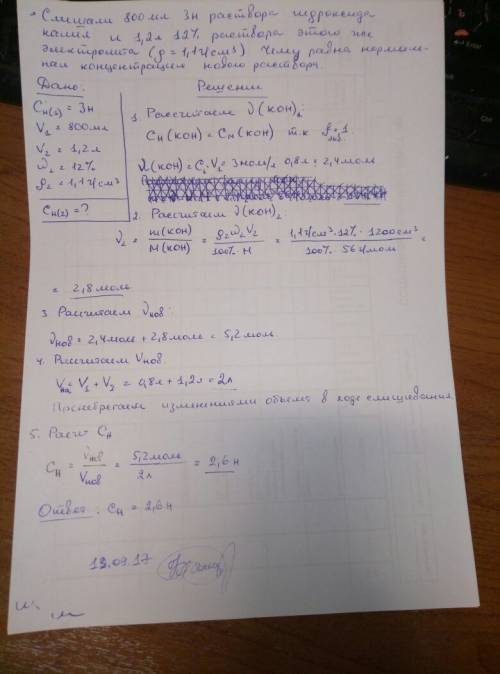 Смешали 800 мл 3н раствора гидроксида
калия и 1,2л 12% раствора этого же
электролита (ρ = 1,1г/см³) Чему равна нормаль-
ная концентрация нового раствора.
Дано:
Cн(1) = 3н
V₁ = 800мл
V₂ = 1,2л
ω₂ = 12%
ρ₂ = 1,1г/см³
Cн(2) = ?
Решение
1. Рассчитаем ν(KOH)₁:
Cн(KOH) = Cм(KOH) т.к fэкв. = 1
ν(KOH) = C₁·V₁ = 3моль/л · 0,8л = 2,4моль
2. Рассчитаем ν(KOH)₂
ν₂ = m(KOH)/M(KOH) = ρ₂ω₂V₂/100%·M = 1,1г/см³·12%·1200см³/100%·56г/моль =
= 2,8моль
3. Рассчитаем νнов:
νнов = 2,4моль + 2,8моль = 5,2моль
4. Рассчитаем Vнов.
Vнов = V₁ + V₂ = 0,8л + 1,2л = 2л
Пренебрегаем изменениями объёма в ходе смешивания.
5. Расчёт Cн
Cн = νнов/Vнов = 5,2моль/2л = 2,6н
Ответ: Cн = 2,6н
13.09.17